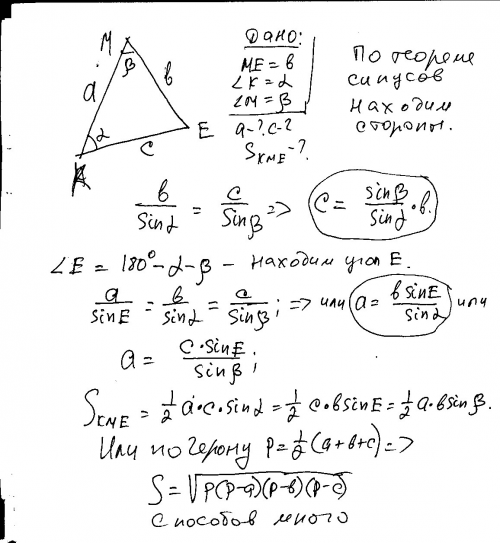 Дано:
ME = в
∠K = α
∠M = β
a-? c-?
S KME -?
По теореме
синусов
находим
стороны.
M
β
a
в
α
c
E
K
в/sinα = c/sinβ => c = sinβ/sinα · в.
∠E = 180° - α - β - находим угол E.
a/sinE = в/sinα = c/sinβ; => или a = в sinE/sinα или
a = c·sinE/sinβ;
S KME = 1/2 a·c·sinα = 1/2 c·в sinE = 1/2 a·в sinβ.
Или по Герону p = 1/2 (a+в+c) =>
S = √p(p-a)(p-в)(p-c)
способов много